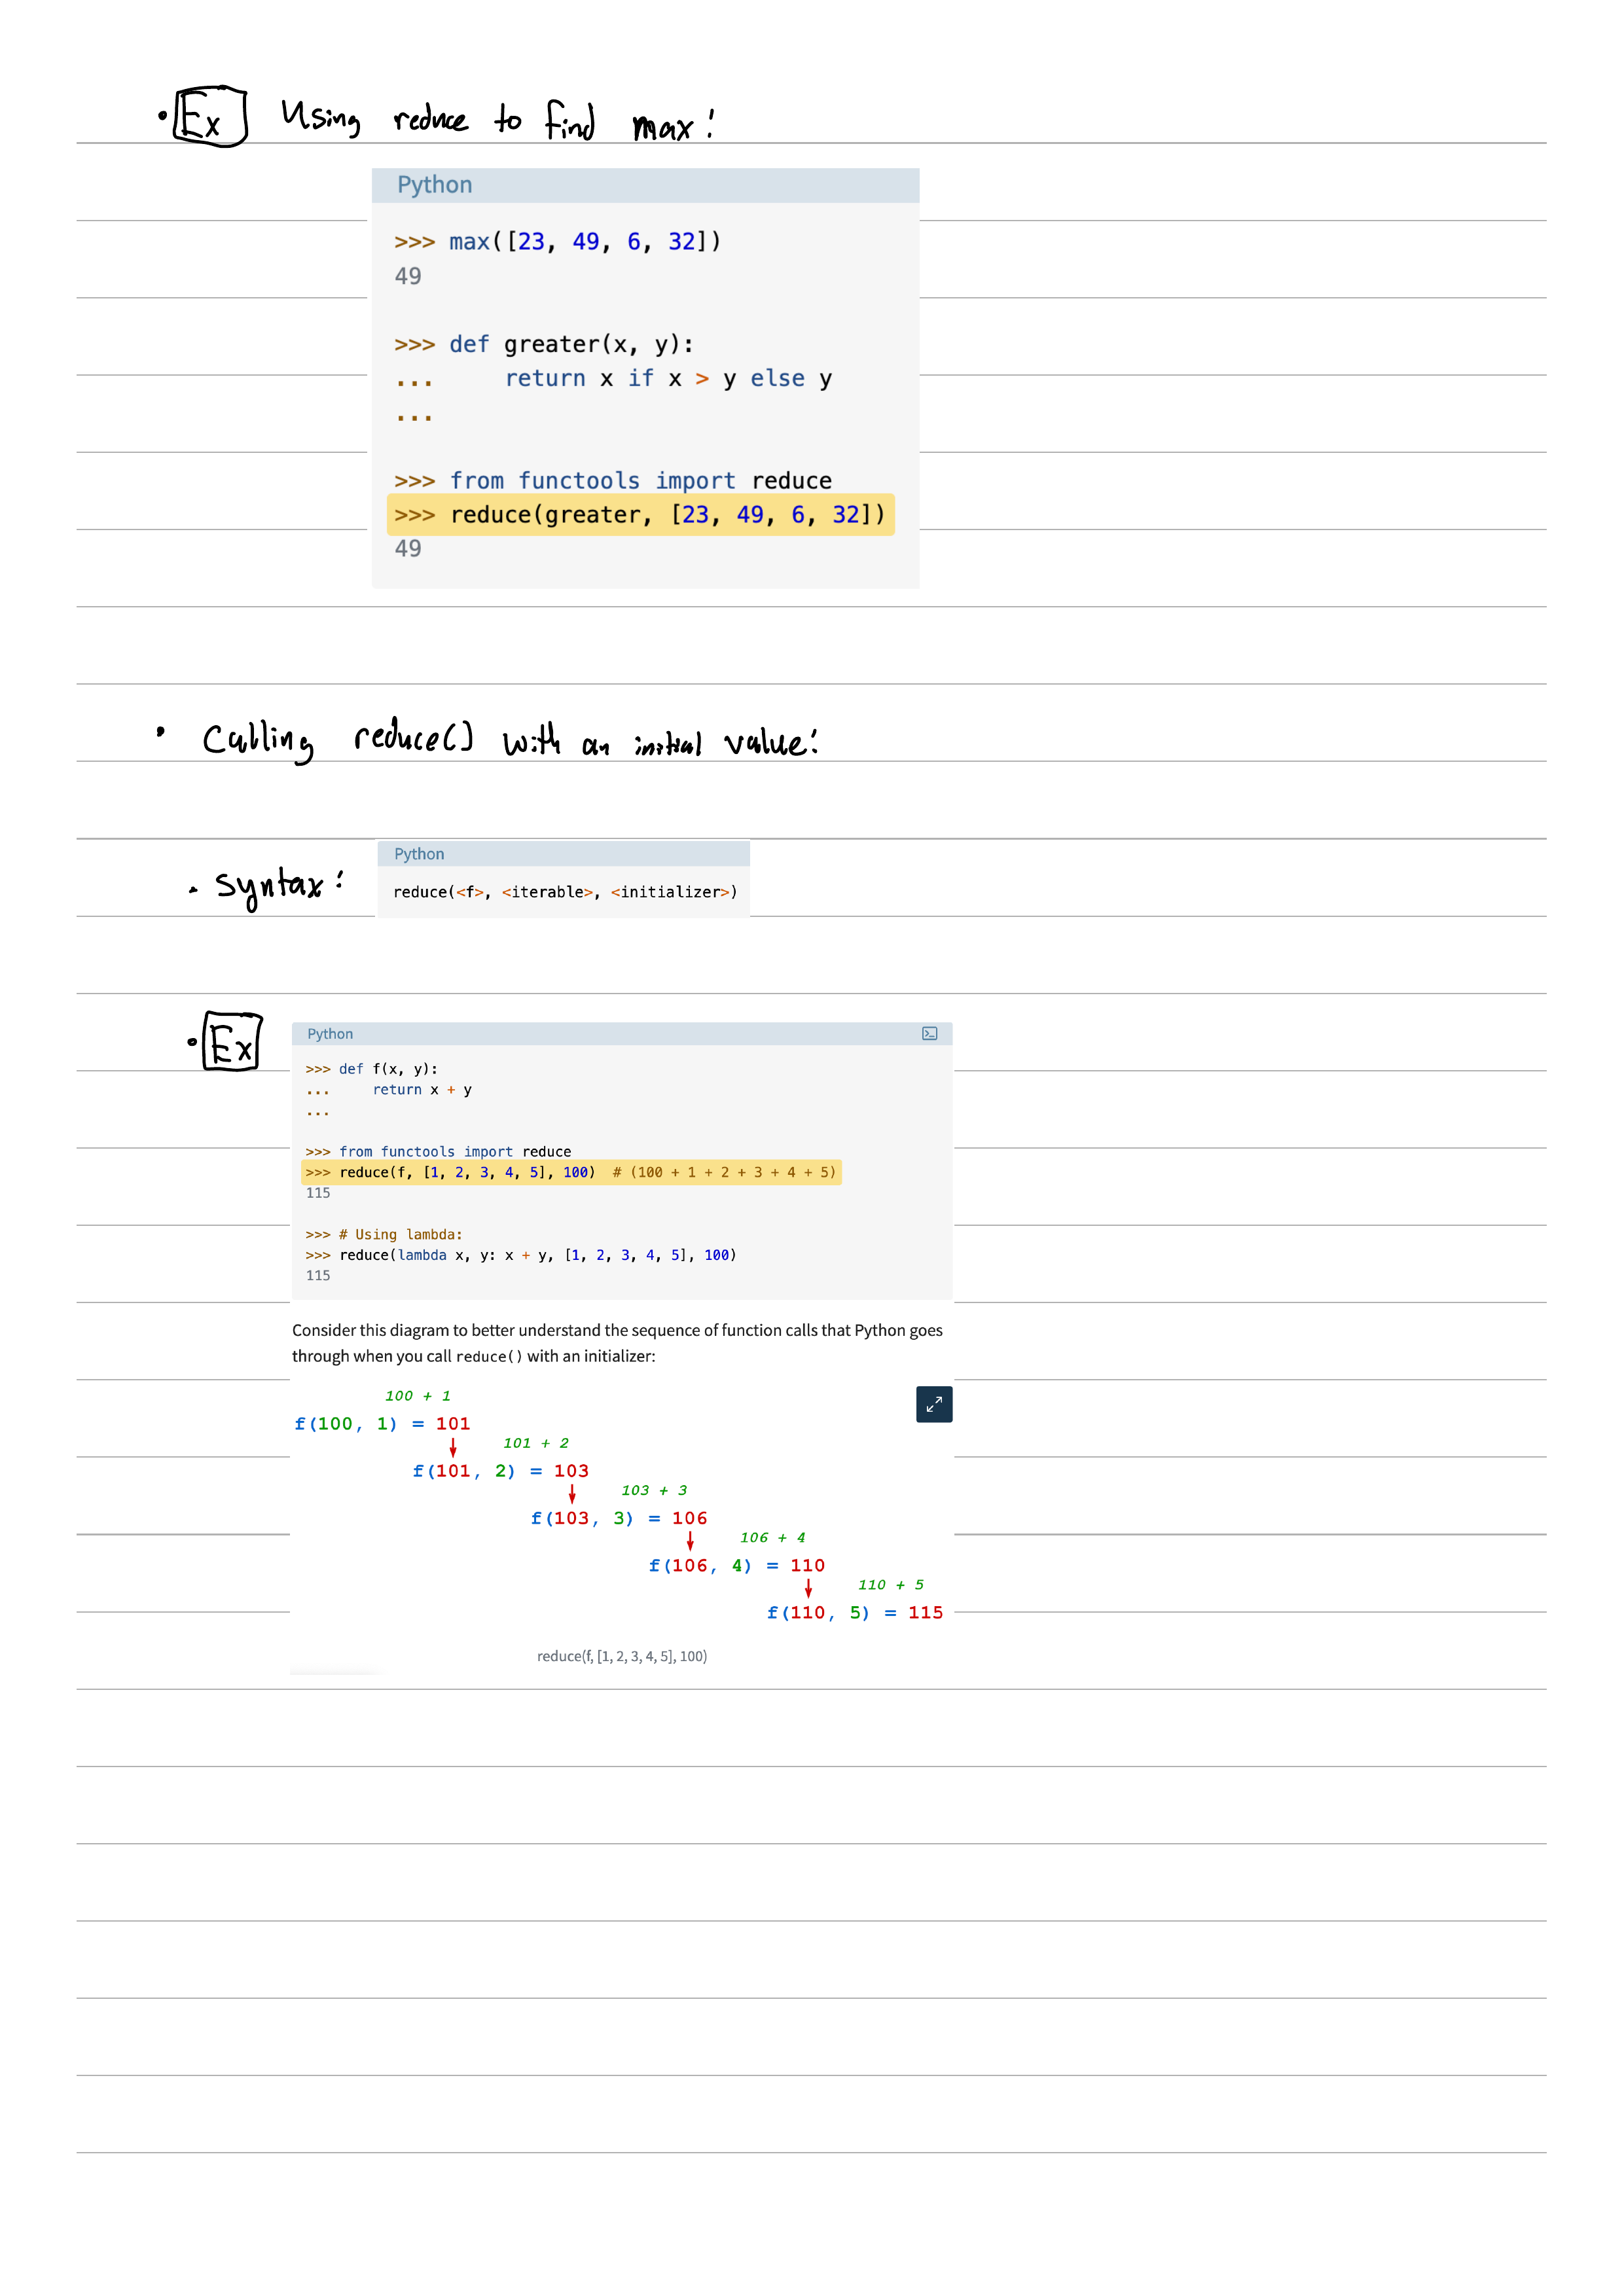 • Ex Using reduce to find max:
Python
>>> max([23, 49, 6, 32])
49
>>> def greater(x, y):
...     return x if x > y else y
...
>>> from functools import reduce
>>> reduce(greater, [23, 49, 6, 32])
49
• Calling reduce() with an initial value:
• Syntax:
Python
reduce(<f>, <iterable>, <initializer>)
• Ex
Python
>>> def f(x, y):
...     return x + y
...
>>> from functools import reduce
>>> reduce(f, [1, 2, 3, 4, 5], 100)  # (100 + 1 + 2 + 3 + 4 + 5)
115
>>> # Using lambda:
>>> reduce(lambda x, y: x + y, [1, 2, 3, 4, 5], 100)
115
Consider this diagram to better understand the sequence of function calls that Python goes
through when you call reduce() with an initializer:
100 + 1
f(100, 1) = 101
101 + 2
f(101, 2) = 103
103 + 3
f(103, 3) = 106
106 + 4
f(106, 4) = 110
110 + 5
f(110, 5) = 115
reduce(f, [1, 2, 3, 4, 5], 100)